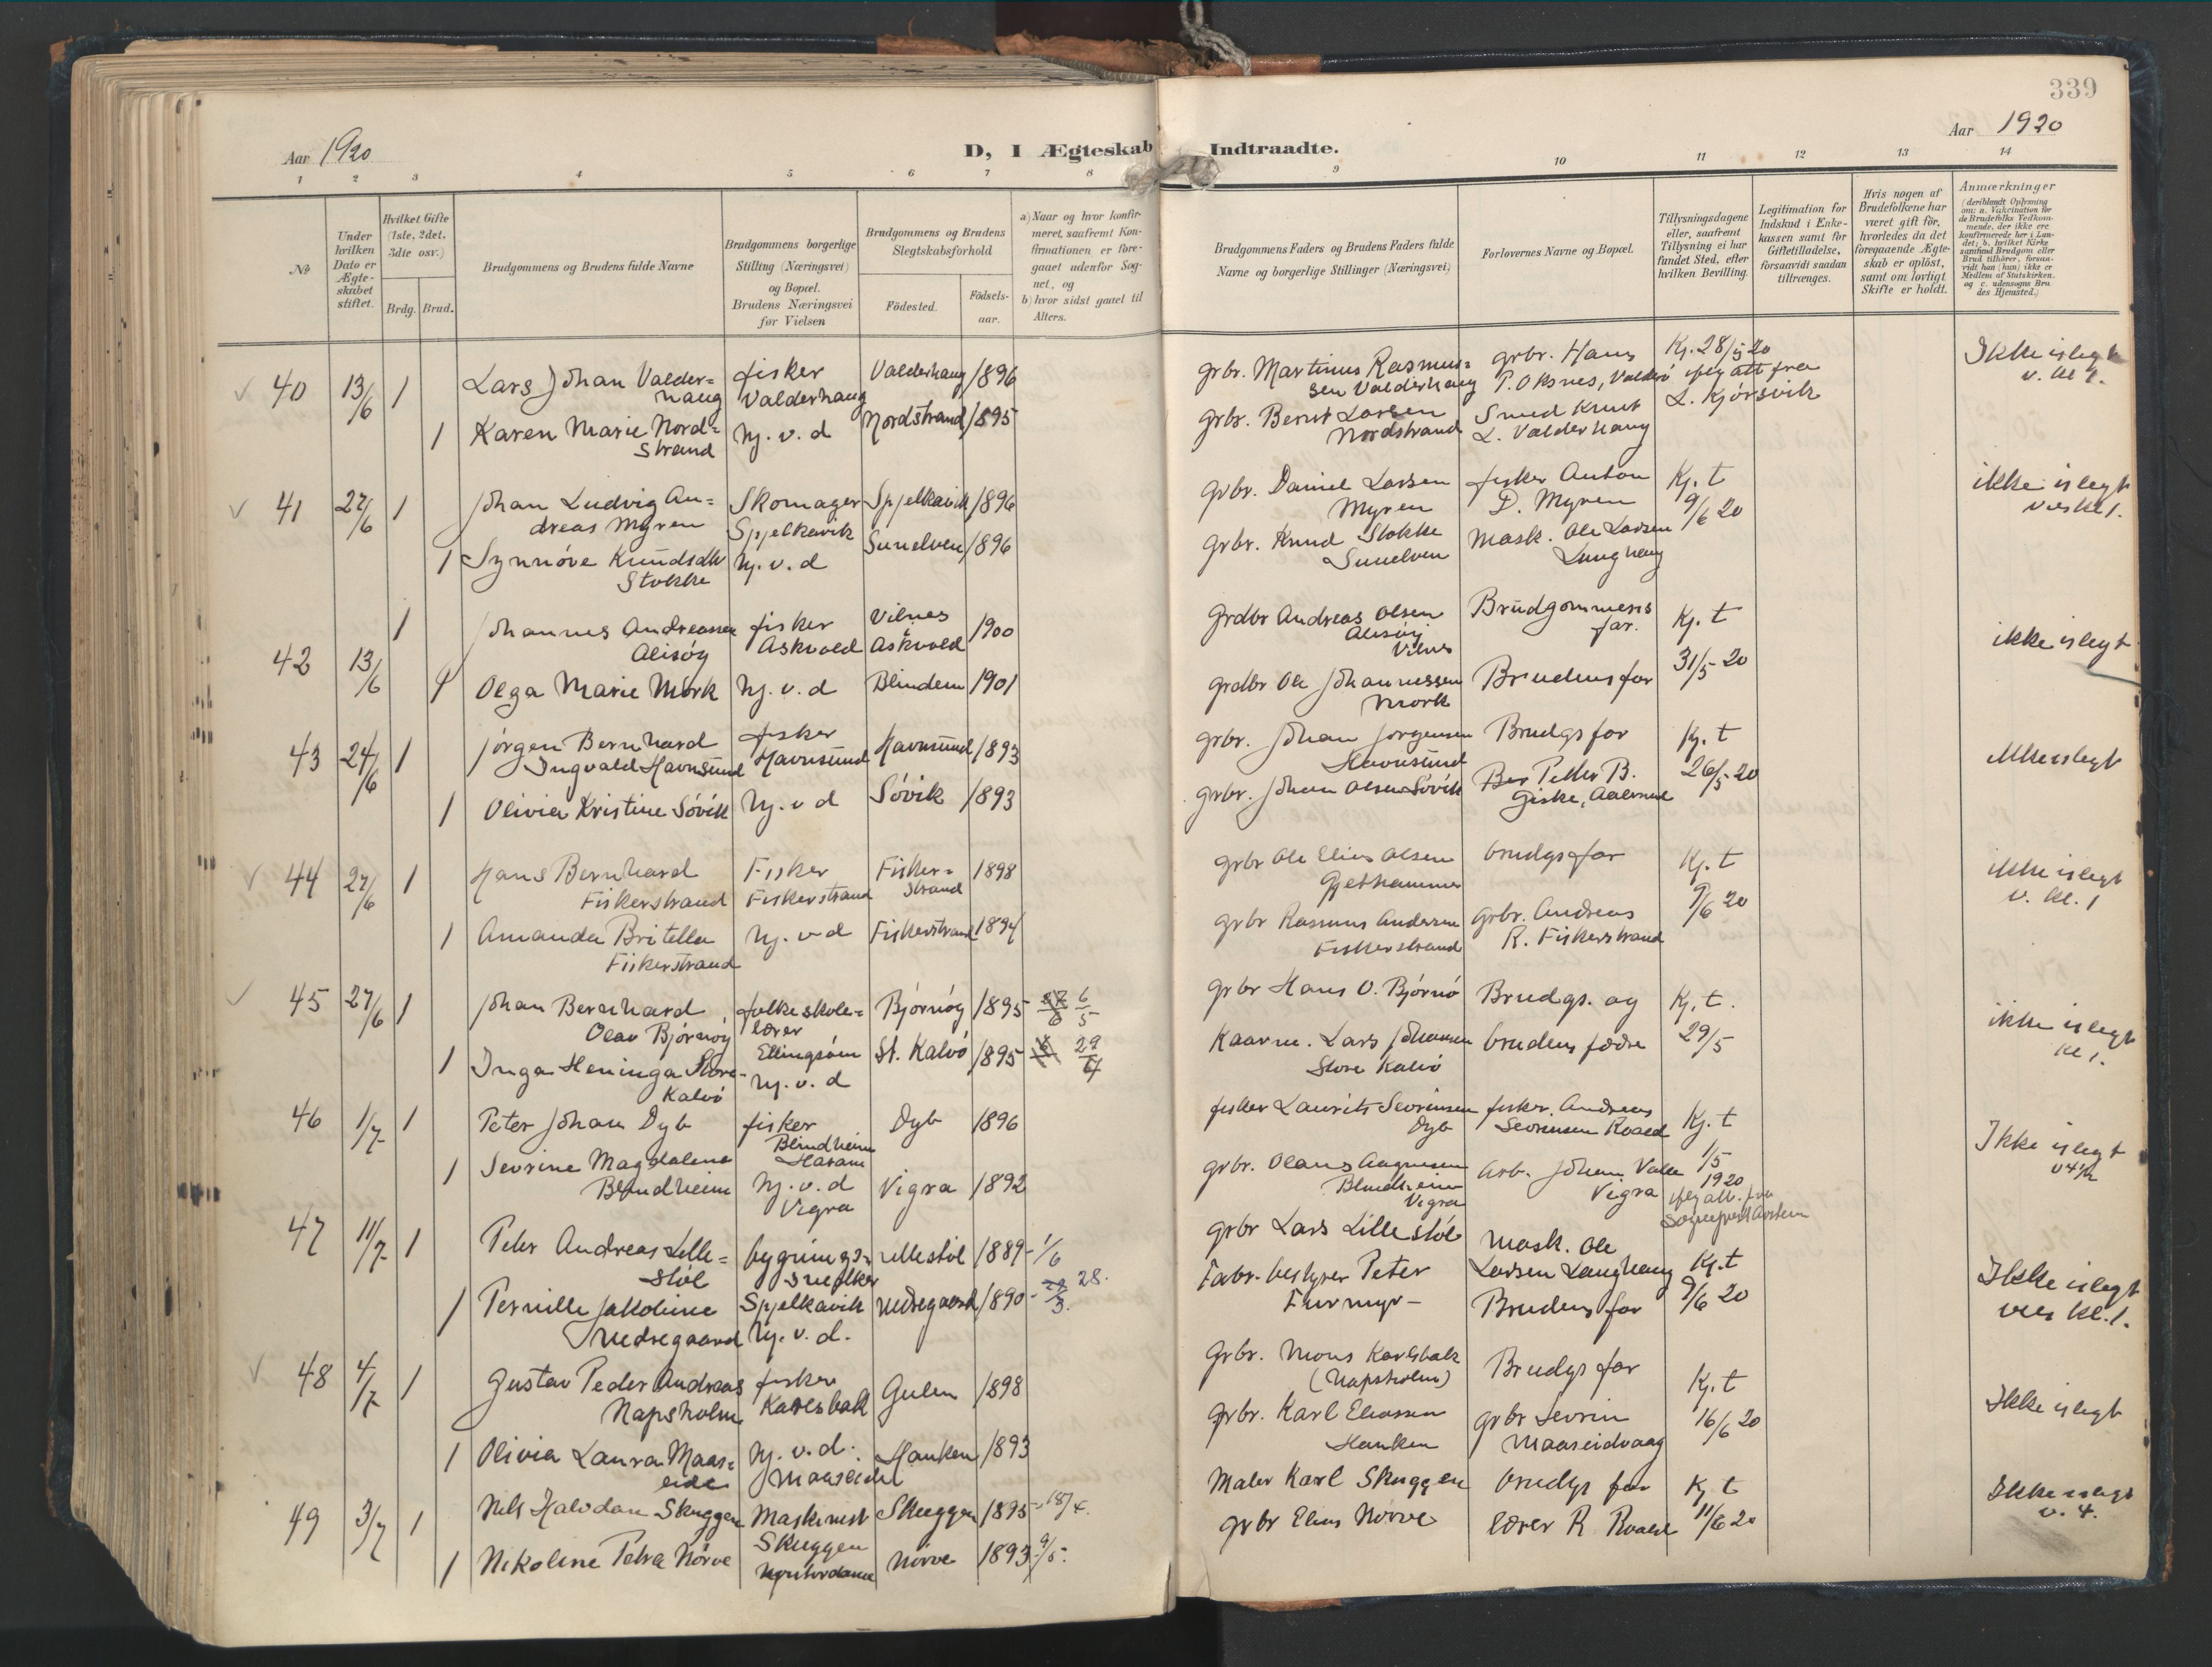 339
Aar 1920
D, I Ægteskab Indtraadte.
Aar 1920
1 2 3 4 5 6 7 8 9 10 11 12 13 14
No
Under hvilken Dato er Ægteskabet stiftet.
Hvilket Gifte (1ste, 2det, 3die osv.)
Brdg. Brud.
Brudgommens og Brudens fulde Navne
Brudgommens borgerlige Stilling (Næringsvei) og Bopæl. Brudens Næringsvei før Vielsen
Brudgommens og Brudens Slegtskabsforhold
Födested. Födselsaar.
a) Naar og hvor konfirmeret, saafremt Konfirmationen er foregaaet udenfor Sognet, og
b) hvor sidst gaaet til Alters.
Brudgommens Faders og Brudens Faders fulde Navne og borgerlige Stillinger (Næringsvei)
Forlovernes Navne og Bopæl.
Tillysningsdagene eller, saafremt Tillysning ei har fundet Sted, efter hvilken Bevilling.
Legitimation for Indskud i Enkekassen samt før Giftetilladelse, forsaavidt saadan tiltrænges.
Hvis nogen af Brudefolkene har været gift før, hvorledes da det foregaaende Ægteskab er oplöst, samt om lovligt Skifte er holdt.
Anmærkninger (deriblandt Oplysning om: a. Vakcination for de Brudefolks Vedkommende, der ikke ere konfirmerede her i Landet; b. hvilket Kirkesamfund Brudgom eller Brud tilhörer, forsaavidt han (hun) ikke er Medlem af Statskirken. og c. udensogns Brudes Hjemsted.)
40 13/6 1 Lars Johan Valder= fisker Valderhaug 1896
haug Valderhaug
1 Karen Marie Nord= hj. v. d Nordstrand 1895
strand
grbr. Martinus Rasmus= grbr. Hans Kj. 28/5 20 Ikke i slegt
sen Valderhaug P. Oksnes, Valderö ifølg att fra v. kl 1.
grbr. Bernt Larsen Smed Knut L. Kjørsvik
Nordstrand L. Valderhaug
41 27/6 1 Johan Ludvig An= Skomager Spjelkavik 1896
dreas Myren Spjelkavik
1 Synnøve Knudsdtr hj. v. d Sunelven 1896
Stokke
grbr. Daniel Larsen fisker Anton Kj. t ikke i slegt
Myren D. Myren 9/6 20 vies kl 1.
grbr. Knud Stokke Mask. Ole Larsen
Sunelven Langhaug
42 13/6 1 Johannes Andreassen fisker Vilnes 1900
Alisøy Askvold Askvold
1 Olga Marie Mörk hj. v. d Blindem 1901
Grdbr Andreas Olsen Brudgommens Kj. t ikke i slegt
Alisøy far.
Vilnes 31/5 20
grdbr Ole Johannessen Brudens far
Mork
43 24/6 1 Jörgen Bernhard fisker Havnsund 1893
Ingvald Havnsund Havnsund
1 Olivia Kristine Sövik hj. v d Sövik 1893
grbr. Johan Jörgensen Brudgs far Kj. t ikke i slegt
Havnsund
grbr. Johan Olsen Sövik Peder B. 26/5 20
Giske, Aalesund
44 27/6 1 Hans Bernhard Fisker Fisker= 1898
Fiskerstrand Fiskerstrand strand
1 Amanda Britella hj. v d Fiskerstrand 1894
Fiskerstrand
grbr Ole Elias Olsen brudgs far Kj. t ikke i slegt
Gjethammer 9/6 20 v. kl. 1
grbr Rasmus Andersen Grbr. Andreas
Fiskerstrand R. Fiskerstrand
45 27/6 1 Johan Bernhard folkeskole= Björnöy 1895 6/5
Olav Björnöy lærer
1 Inga Heninga Store- Ellingsöen St. Kalvö 1895 29/4
Kalvö hj. v. d
grbr Hans O. Björnö Brudgs. og Kj. t. ikke i slegt
Kaarm. Lars Johansen brudens fædre 29/5 kl 1.
Store Kalvö
46 1/7 1 Peter Johan Dyb fisker Dyb 1896
Blindheim
Haram
1 Sevrine Magdalene hj. v. d Vigra 1892
Blindheim Vigra
fisker Laurits Sevrinsen fisker. Andreas Kj. t Ikke i slegt
Dyb Sevrinsen Roald 1/5 v 4½
grbr. Olaus Aagesen Arb. Johan Valle 1920
Blindheim Vigra ifølg att. fra
Vigra
47 11/7 1 Peter Andreas Lille= bygnings= Lillestöl 1889 1/6
stöl snedker
1 Pernille Jakobine Spjelkavik Nedregaard 1890 28.
Nedregaard hj. v. d. 3.
grbr Lars Lillestöl Mask. Ole Kj. t Ikke i slegt
Fabr. bestyrer Peter Larsen Langhaug 9/6 20 vies kl. 1.
Furmyr Brudens far
48 4/7 1 Gustav Peder Andreas fisker Gulen 1898
Napsholm Karlsbak
1 Olivia Laura Maas= hj. v. d. Hanken 1893
eide Maaseide
grbr. Mons Karlsbak Brudgs far Kj. t Ikke i slegt
(Napsholm)
grbr. Karl Eliassen grbr Sevrin 16/6 20
Hanken Maaseidvaag
49 3/7 1 Nils Halvdan Skuggen Maskinist Skuggen 1895 18/4.
Skuggen
1 Nikoline Petra Nörve Nörve 1893 9/5.
Maler Karl Skuggen brudgs far Kj t Ikke i slegt
grbr Elias Nörve lærer R Roald 11/6 20 v. 4.